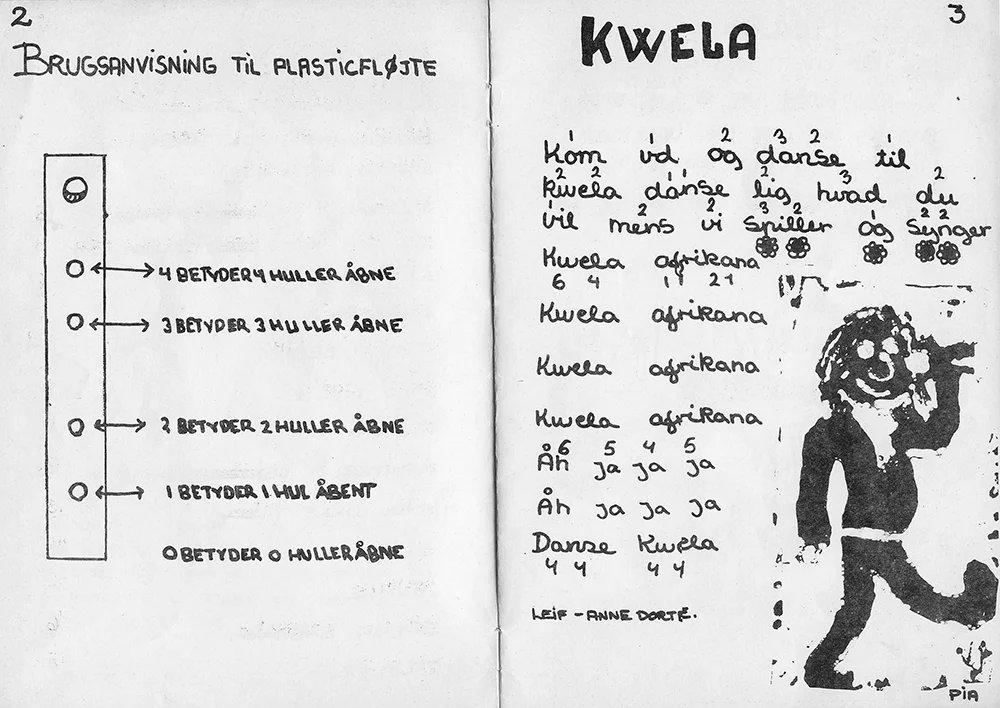 2
BRUGSANVISNING TIL PLASTICFLØJTE
4 BETYDER 4 HULLER ÅBNE
3 BETYDER 3 HULLER ÅBNE
2 BETYDER 2 HULLER ÅBNE
1 BETYDER 1 HUL ÅBENT
0 BETYDER 0 HULLER ÅBNE
3
KWELA
1 1 2 3 2 1
Kom ud og danse til
2 2 1 1 2 3 2
kwela danse lig hvad du
1 2 2 3 2 1 2 2
vil mens vi spiller og synger
Kwela afrikana
6 4 1 1 2 1
Kwela afrikana
Kwela afrikana
Kwela afrikana
6 5 4 5
Åh ja ja ja
Åh ja ja ja
Danse Kwela
4 4 4 4
LEIF - ANNE DORTE.
PIA